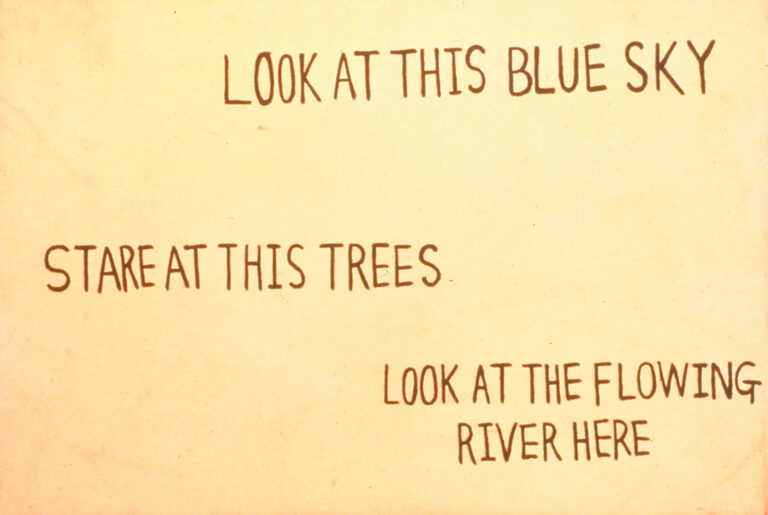 LOOK AT THIS BLUE SKY
STARE AT THIS TREES
LOOK AT THE FLOWING
RIVER HERE